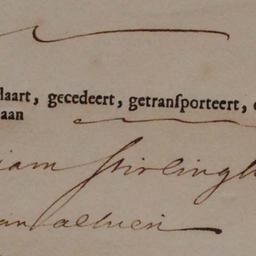 laart, gecedeert, getransporteert,
aan
iam Stirlingh